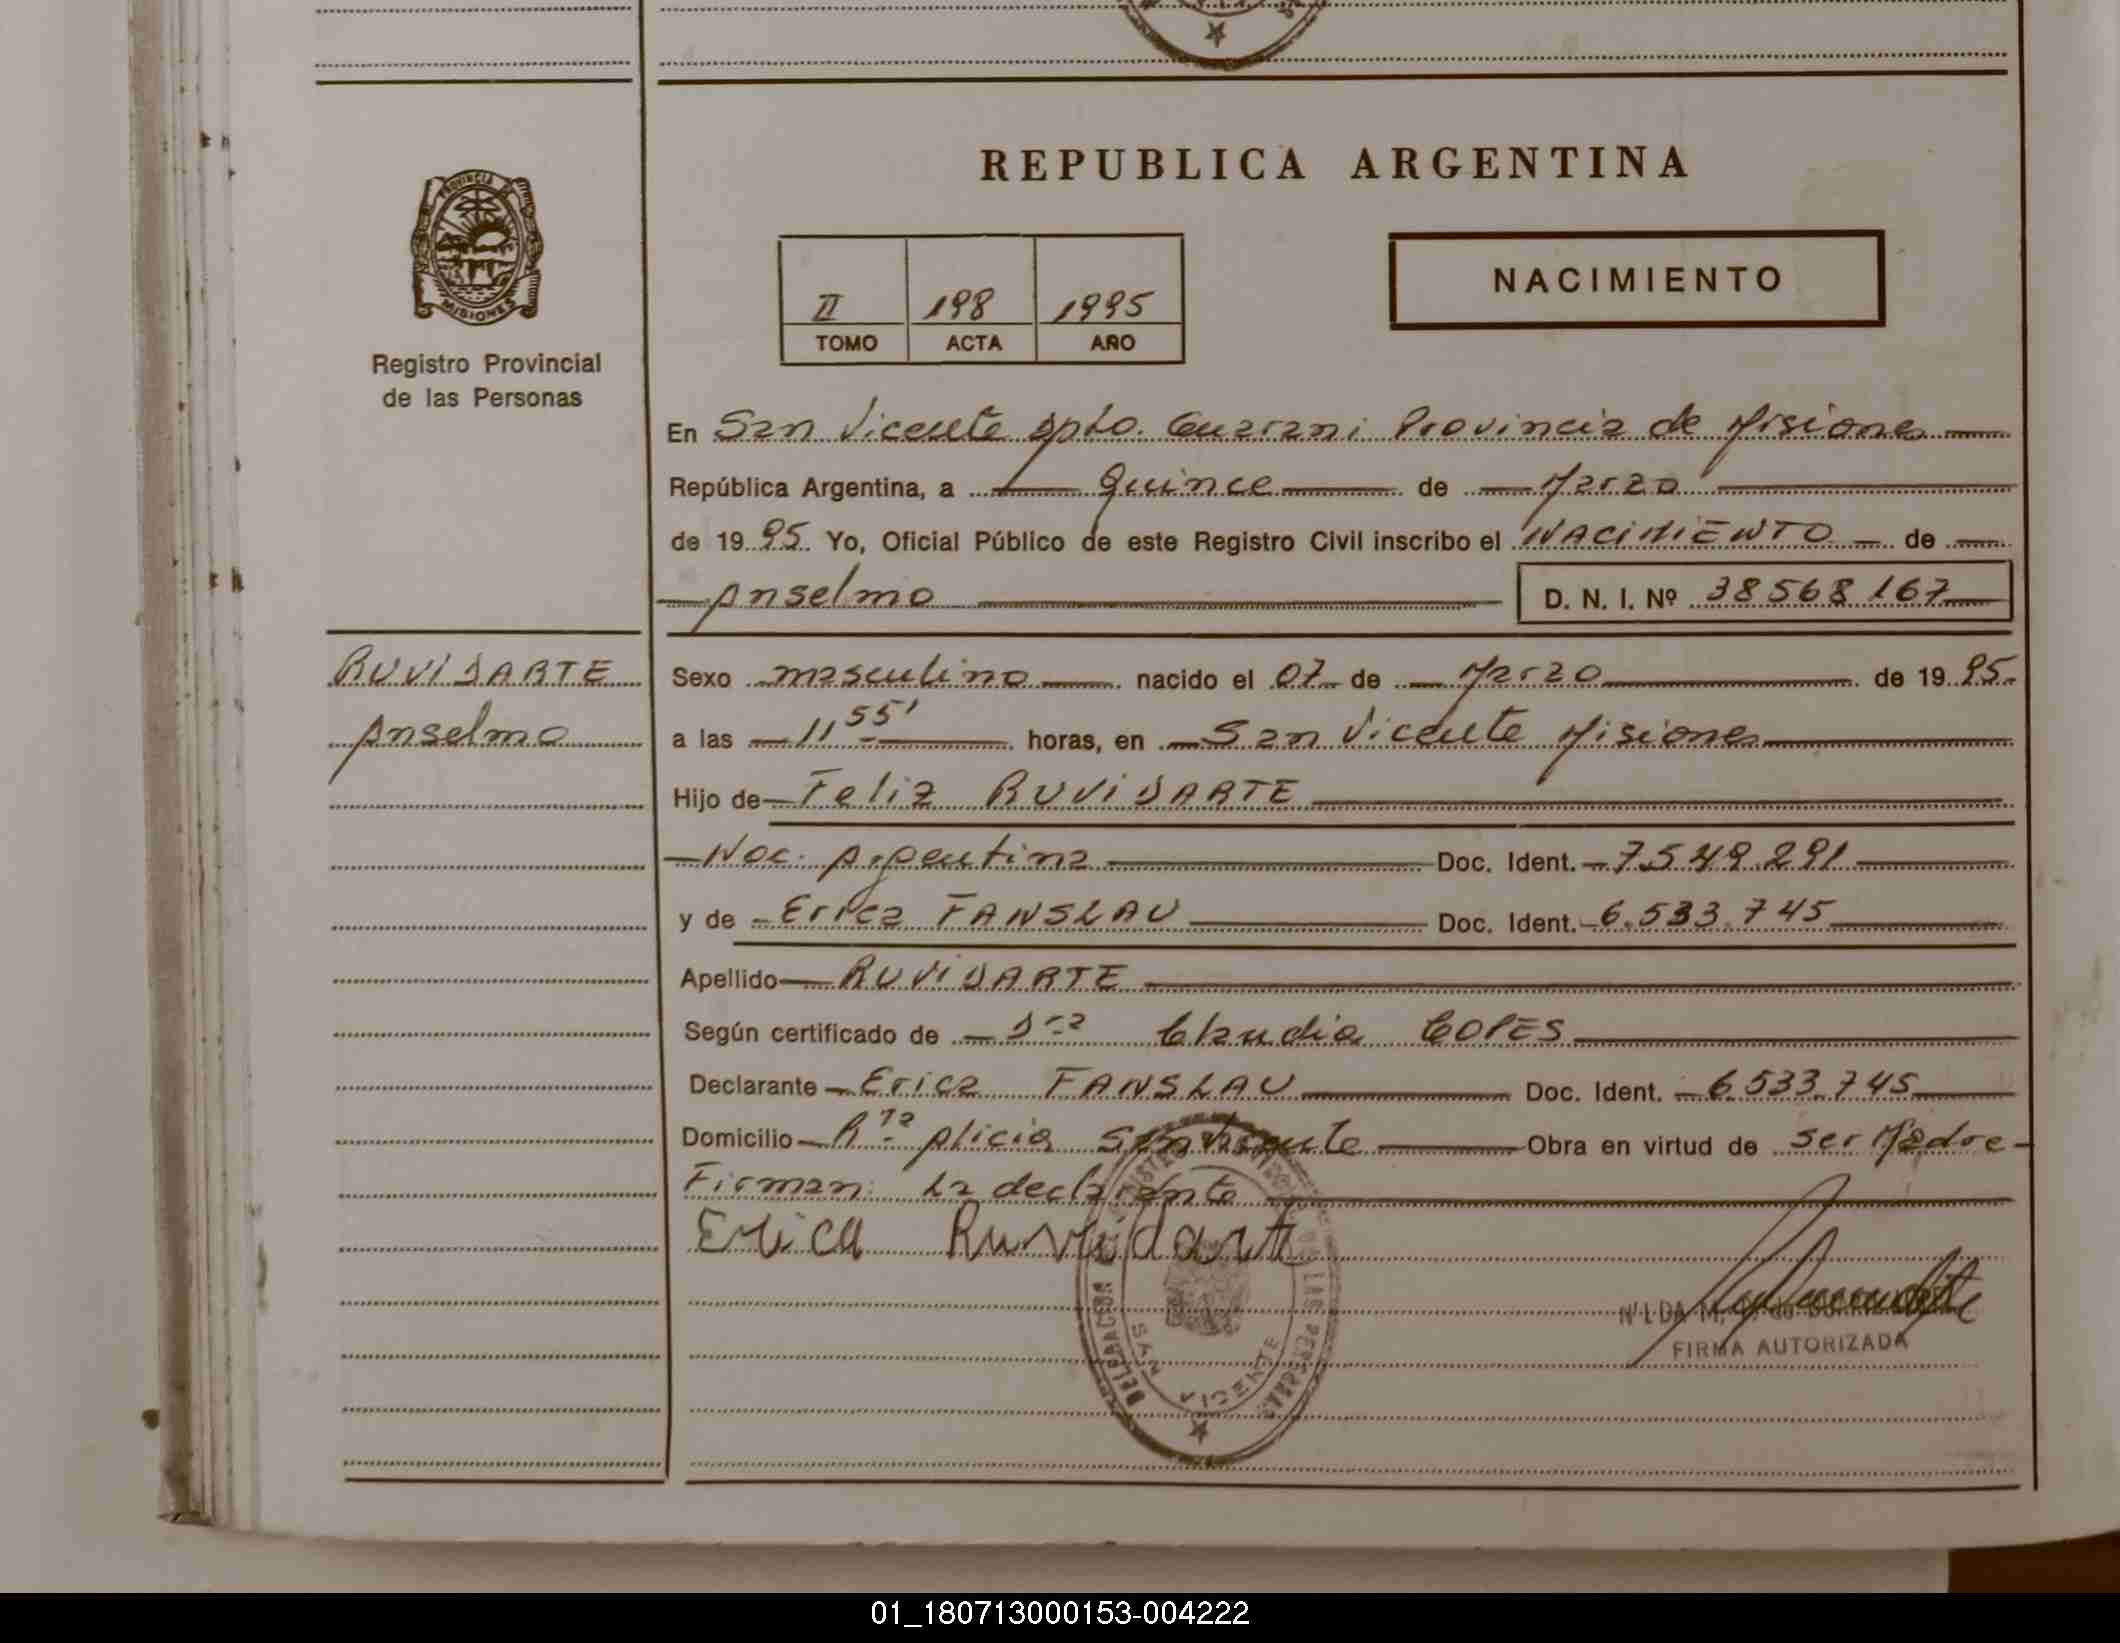 REPUBLICA ARGENTINA
PROVINCIA DE
MISIONES
Registro Provincial
de las Personas
II 198 1995
TOMO ACTA AÑO
NACIMIENTO
En San Vicente Dpto. Guarani Provincia de Misiones
República Argentina, a Quince de Marzo
de 1995. Yo, Oficial Público de este Registro Civil inscribo el NACIMIENTO de
Anselmo D. N. I. Nº 38568167
RUVIDARTE
Anselmo
Sexo masculino nacido el 07 de Marzo de 1995.
a las 11 55' horas, en San Vicente Misiones
Hijo de Feliz RUVIDARTE
Nac. Argentina Doc. Ident. 7.549.291
y de Erica FANSLAU Doc. Ident. 6.533.745
Apellido RUVIDARTE
Según certificado de Dra Claudia COPES
Declarante Erica FANSLAU Doc. Ident. 6.533.745
Domicilio Rta Alicia San Vicente Obra en virtud de ser Madre
Firman: La declarante
Erica Ruvidart
NILDA M.
FIRMA AUTORIZADA
DELEGACION LAS PERSONAS
SAN VICENTE
01_180713000153-004222